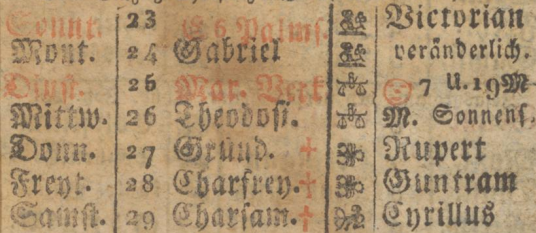 Sonnt. 23 E 6 Palms. Victorian
Mont. 24 Gabriel veränderlich.
Dinst. 25 Mar. Verk 7 U. 19 M
Mittw. 26 Theodosi. M. Sonnenf.
Donn. 27 Gründ. † Rupert
Freyt. 28 Charfrey. † Guntram
Samst. 29 Charsam. † Cyrillus